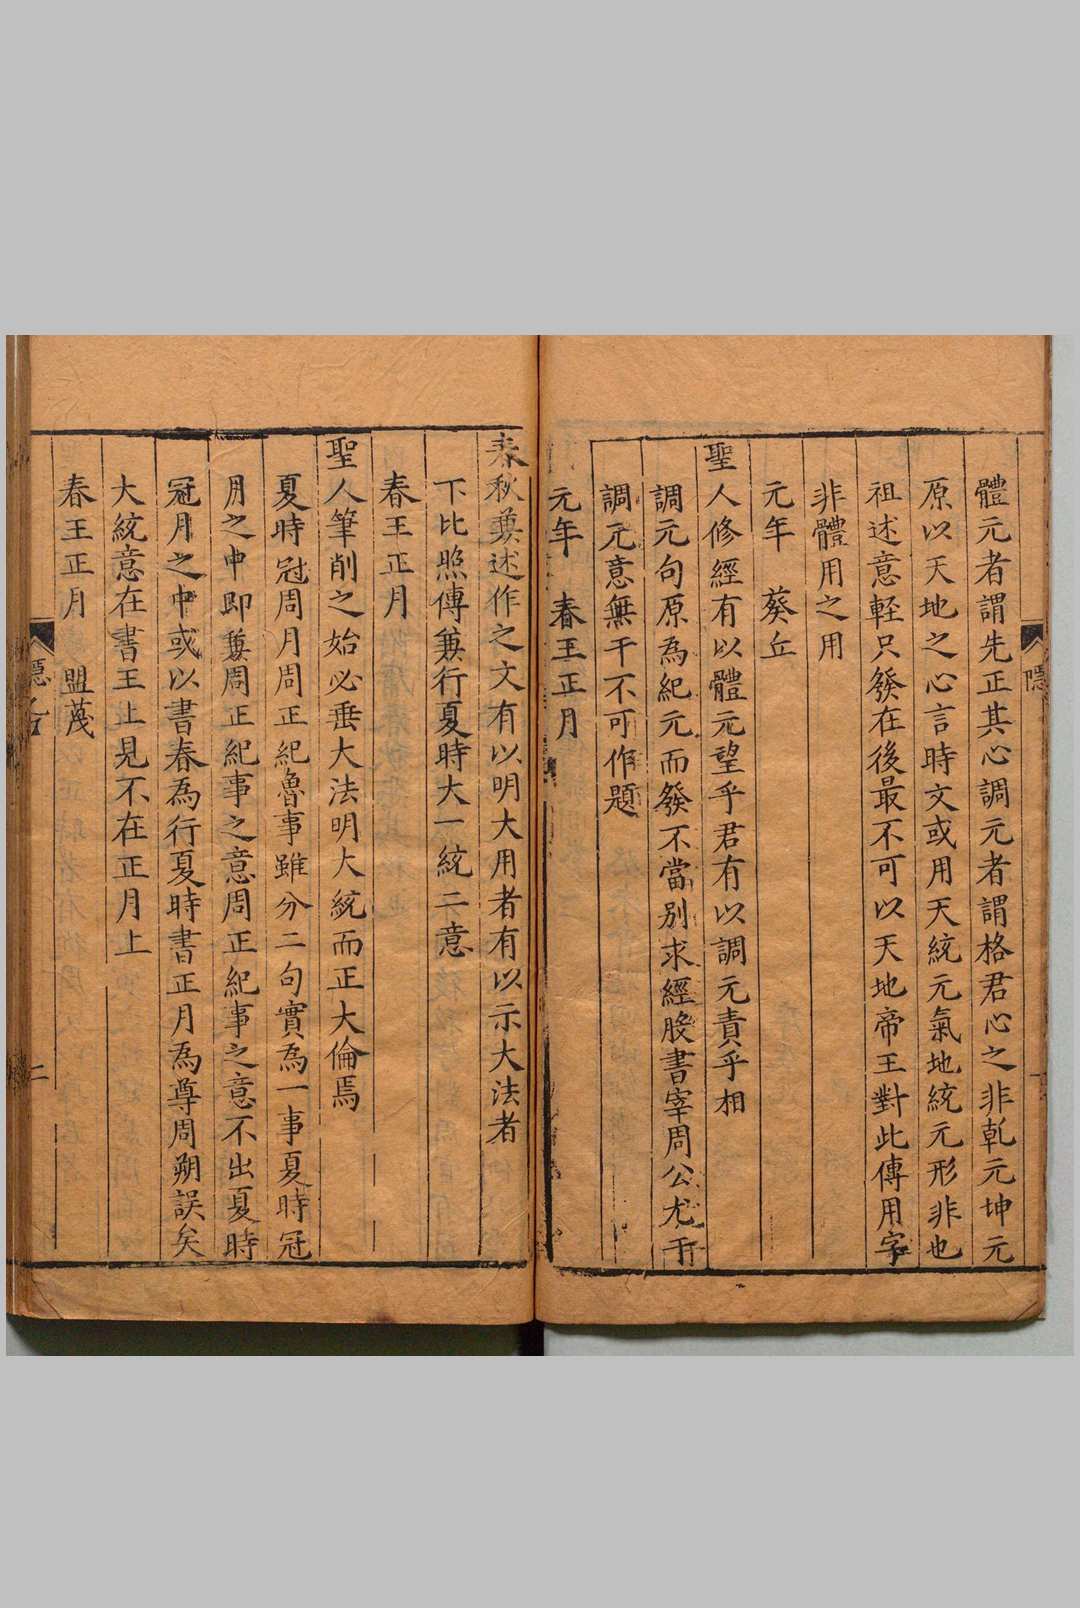 體元者謂先正其心調元者謂格君心之非乹元坤元
原以天地之心言時文或用天統元氣地統元形非也
祖述意輕只發在後最不可以天地帝王對此傳用字
非體用之用
元年　葵丘
聖人修經有以體元望乎君有以調元責乎相
調元句原為紀元而發不當別求經股書宰周公尤于
調元意無干不可作題
元年　春王正月
春秋𠔥述作之文有以明大用者有以示大法者
下比照傳𠔥行夏時大一統二意
春王正月
聖人筆削之始必垂大法明大統而正大倫焉
夏時冠周月周正紀魯事雖分二句實為一事夏時冠
月之中即𠔥周正紀事之意周正紀事之意不出夏時
冠月之中或以書春為行夏時書正月為尊周朔誤矣
大統意在書王上見不在正月上
春王正月　盟蔑
隱
二
隱